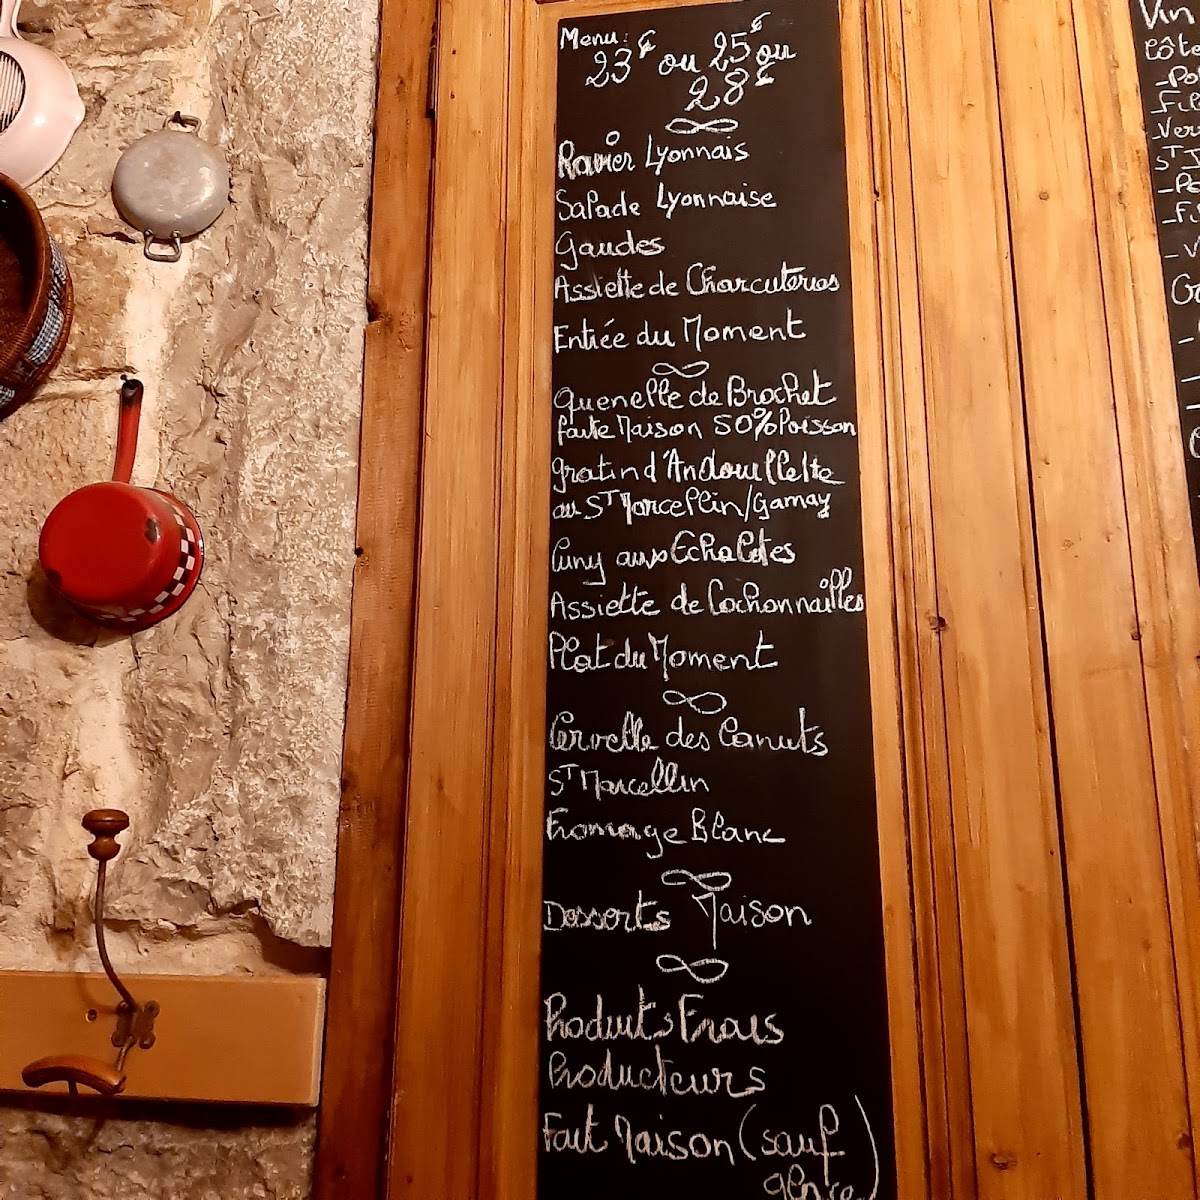 Menu:
23€ ou 25€ ou
28€
Ravier Lyonnais
Salade Lyonnaise
Gaudes
Assiette de Charcuteries
Entrée du Moment
Quenelle de Brochet
faite Maison 50% Poisson
Gratin d'Andouillette
au St Marcellin/Gamay
Cuny aux Echalotes
Assiette de Cochonnailles
Plat du Moment
Cervelle des Canuts
St Marcellin
Fromage Blanc
Desserts Maison
Produits Frais
Producteurs
Fait Maison (sauf
glace)
Vin
Côte